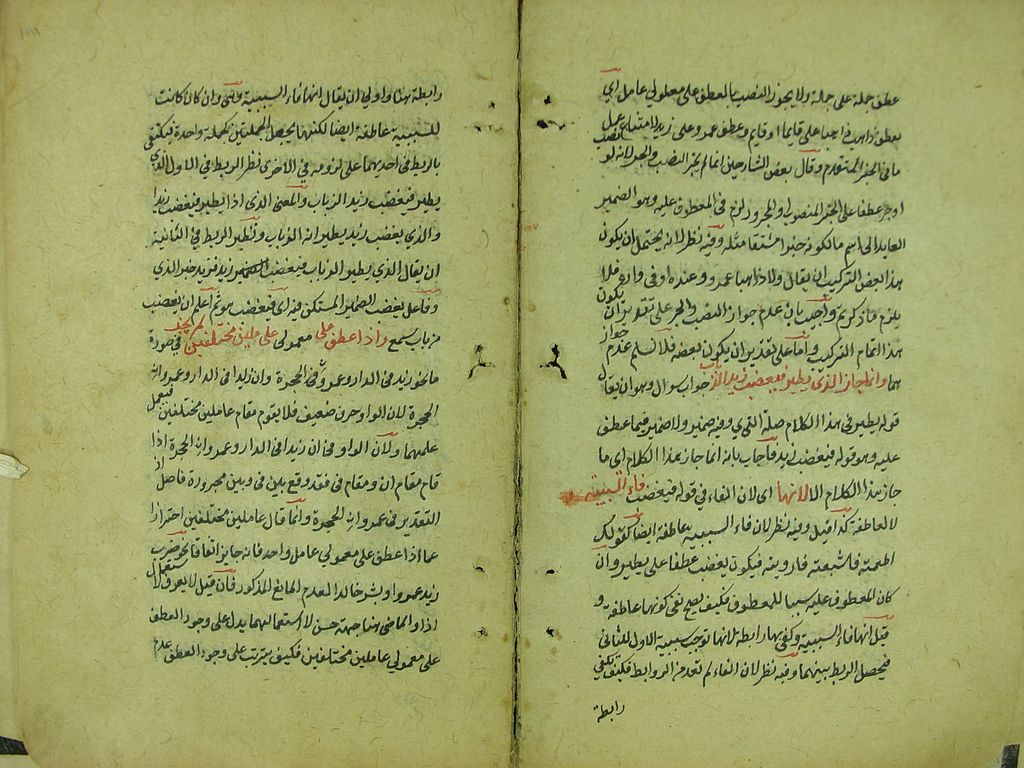 عطف جملة على جملة ولا يجوز النصب بالعطف على معمولي عامل اي
بعطف ذاهب في اجبا على قايما او قايم وعطف عمرو على زيد لامتناع عمل
ما في الخبر المتقدم وقال بعض الشارحين انما لم يجز النصب والجر لانه لو
اوجر عطفا على الخبر المنصوب او المجرور لزم في المعطوف عليه وهو الضمير
العايد الى اسم ما لكونه خبرا مشتقا مثله وفيه نظر لانه يحتمل ان يكون
هذا بعض التركيب ان يقال ولا ذاهبا عمرو وعنده او في داره فلا
يلزم ما ذكرتم واجيب بان عدم جواز النصب والجر على تقدير ان يكون
هذا تمام التركيب واما على تقدير ان يكون بعضه فلا نسلم عدم جواز
هما وانما جاز الذي يطير فيغضب زيد الذباب جواب سوال وهو ان يقال
قوله يطير في هذا الكلام صلة الذي وفيه ضمير ولا ضمير فيما عطف
عليه وهو قوله فيغضب زيد فاجاب بانه انما جاز هذا الكلام اي ما
جاز هذا الكلام الا لانها اي لان الفاء في قوله فيغضب فاء السببية
لا العاطفة كذا قيل وفيه نظر لان فاء السببية عاطفة ايضا كقولك
اطعمته فاشبعته فارويته فيكون يغضب عطفا على يطير وان
كان المعطوف عليه سببا للمعطوف فكيف يصح نفي كونها عاطفة و
قيل انها فاء السببية وكفى بها رابطة لانها توجب سببية الاول للثاني
فيحصل الربط بينهما وفيه نظر لان الفاء لم تعد من الروابط فكيف تكفي
رابطة
رابطة هنا واولى ان يقال انها فاء السببية وهي وان كانت
للسببية عاطفة ايضا لكنها يجعل الجملتين كجملة واحدة فيكتفى
بالربط في احديهما على لزومه في الاخرى نظر الربط في الاول الذي
يطير فيغضب زيد الذباب والمعنى الذي اذا يطير فيغضب زيد
والذي يغضب زيد بطيرانه الذباب ونظير الربط في الثانية
ان يقال الذي يطير الذباب فيغضب زيد فزيد خبر الذي
وفاعل يغضب الضمير المستكن فيه اي فيغضب هو ثم اعلم ان يغضب
من باب سمع واذا عطف على معمولي عاملين مختلفين لم يجز في صورة
ما نحو زيد في الدار وعمرو في الحجرة وان زيدا في الدار وعمروا
الحجرة لان الواو حرف ضعيف فلا يقوم مقام عاملين مختلفين فيعمل
عملهما ولان الواو في ان زيدا في الدار وعمروا الحجرة اذا
قام مقام ان ومقام في فقد وقع بين في وبين مجروره فاصل اذ
التقدير في عمروا الحجرة وانما قال عاملين مختلفين احترازا
عما اذا عطف على معمولي عامل واحد فانه جايز اتفاقا نحو ضرب
زيد عمروا وبشر خالدا لعدم المانع المذكور فان قيل
اذا والماضي هنا جهة حسن لاستعمالهما يدل على وجود العطف
على معمولي عاملين مختلفين فكيف يترتب على وجود العطف عدم